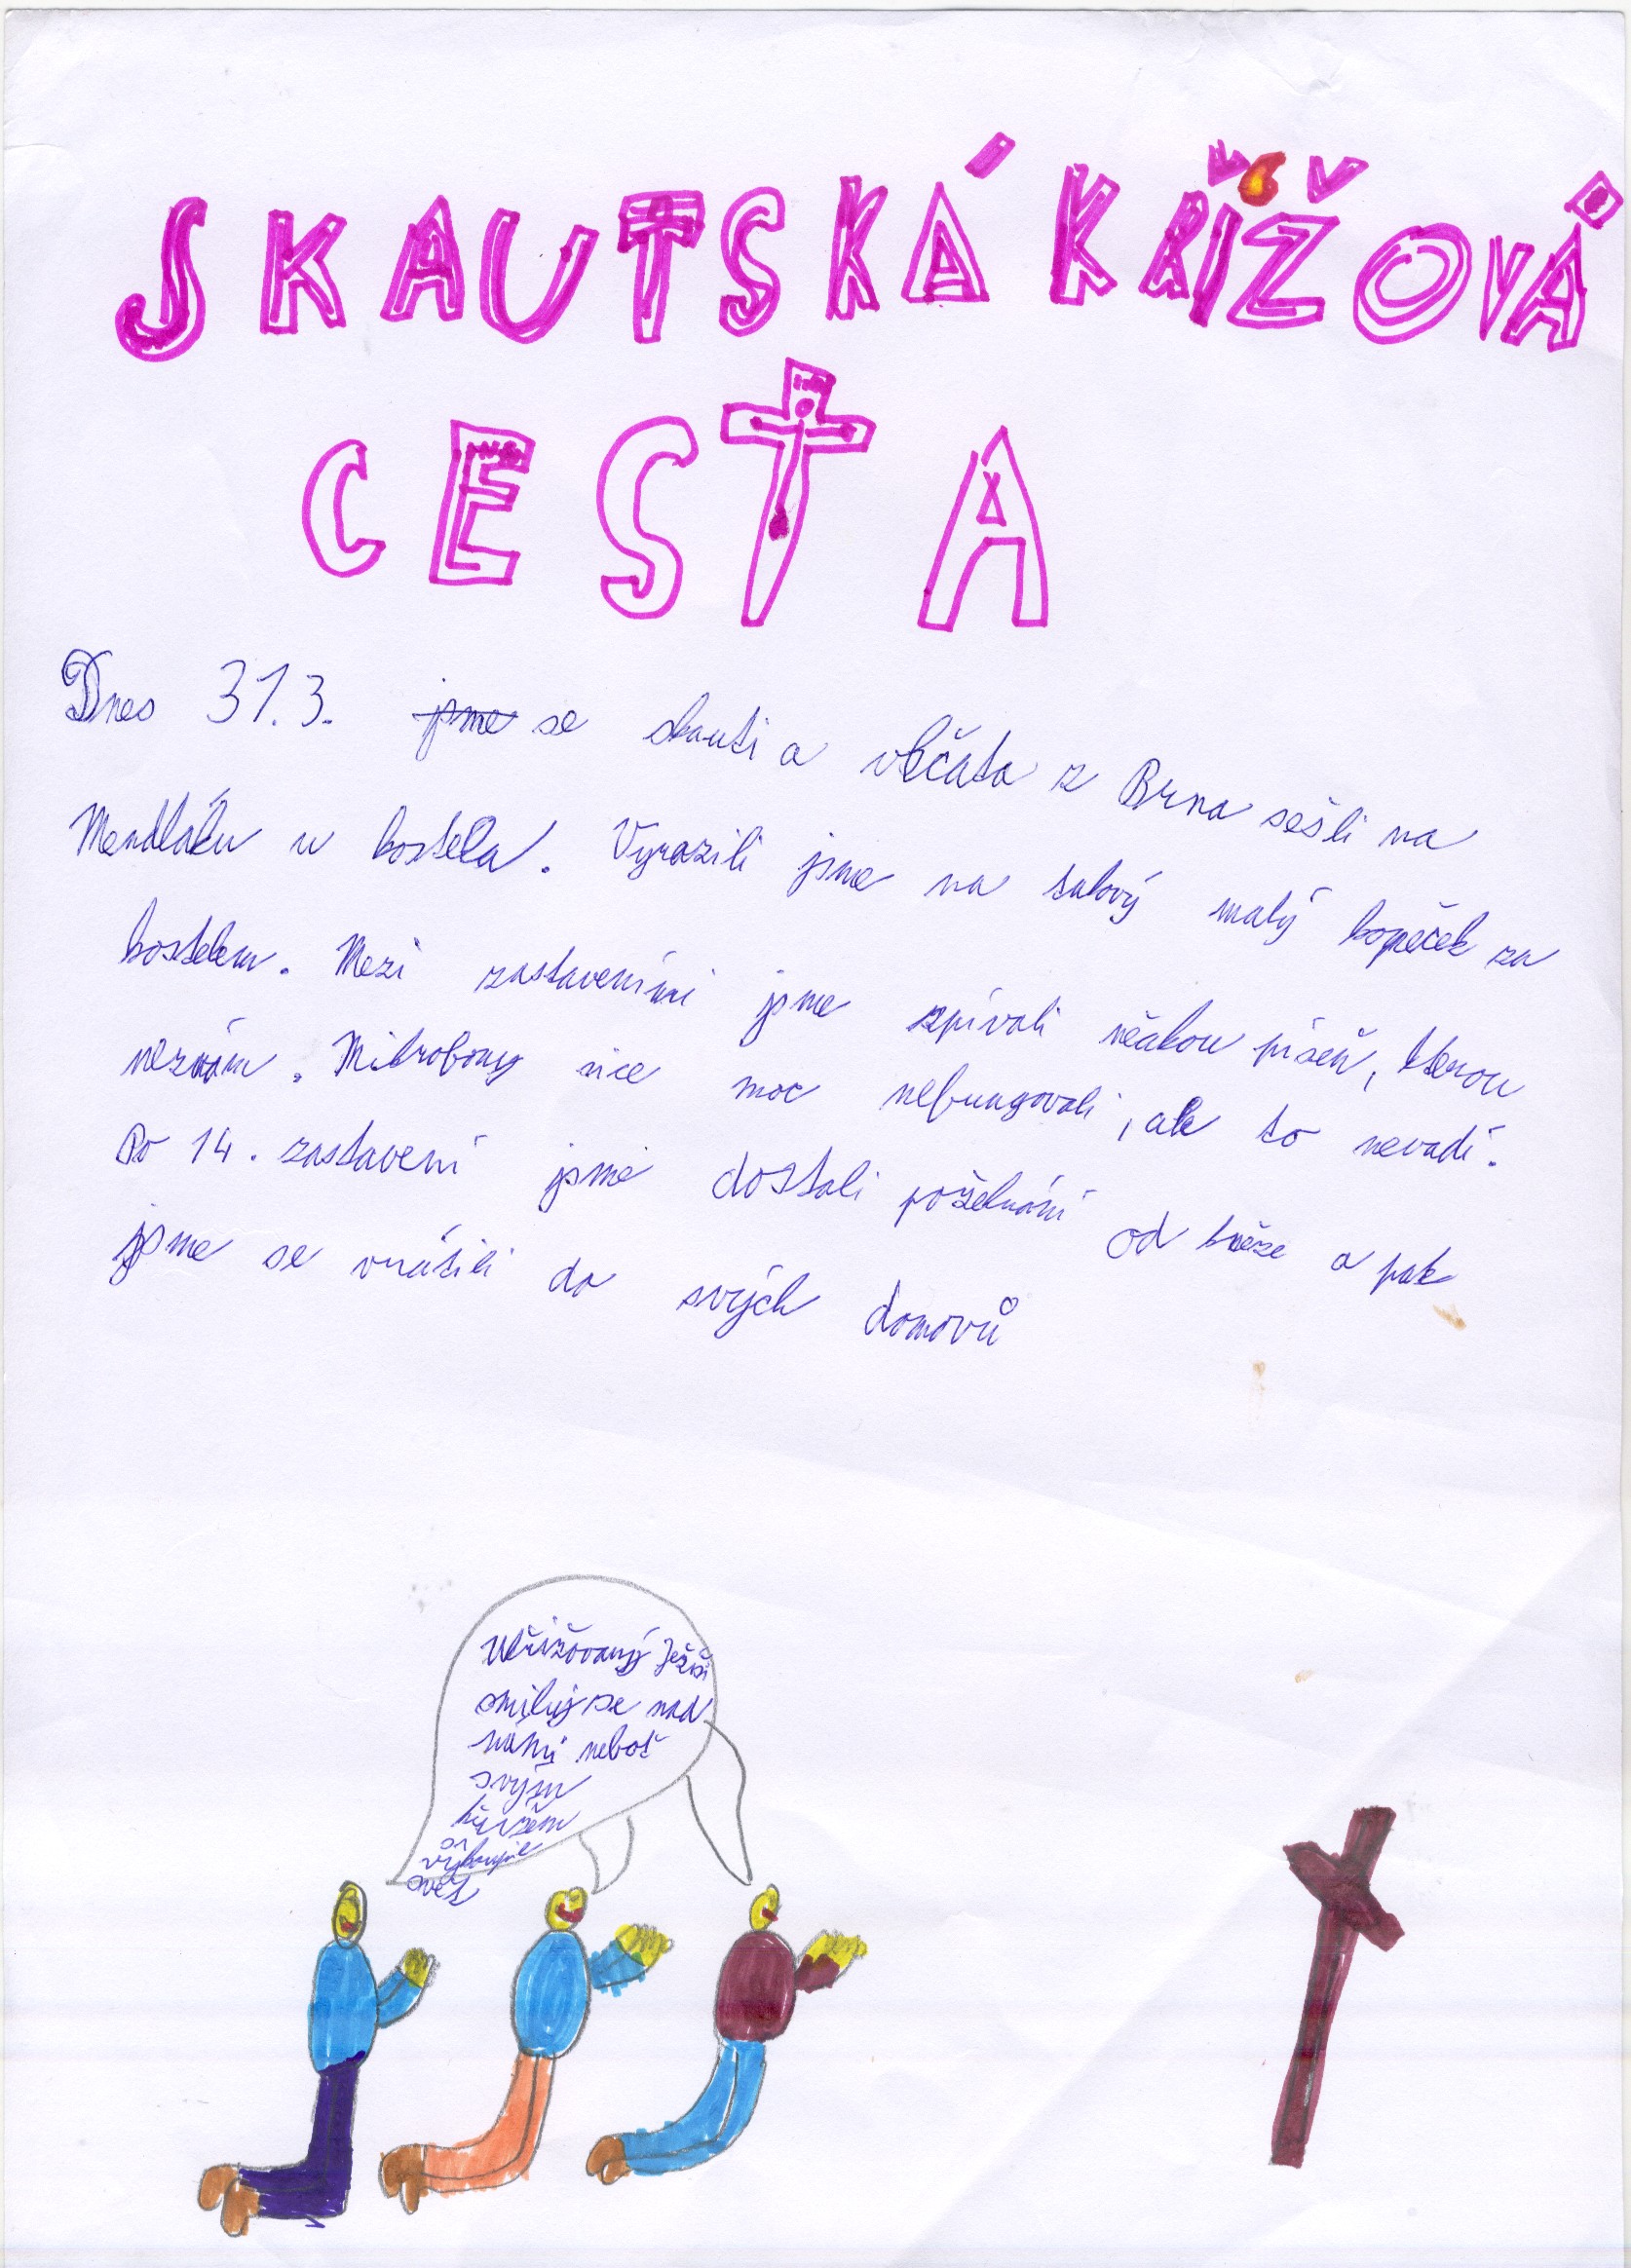 SKAUTSKÁ KŘÍŽOVÁ
CESTA
Dnes 31.3. jsme se skauti a vlčata z Brna sešli na
Mendláku u kostela. Vyrazili jsme na takový malý kopeček za
kostelem. Mezi zastaveními jsme zpívali něakou píseň, kterou
neznám. Mikrofony sice moc nefungovali, ale to nevadí.
Po 14. zastavení jsme dostali požehnání od kněze a pak
jsme se vrátili do svých domovů
Ukřižovaný Ježíši
smiluj se nad
námi neboť
svým
křížem
vykoupil
svět